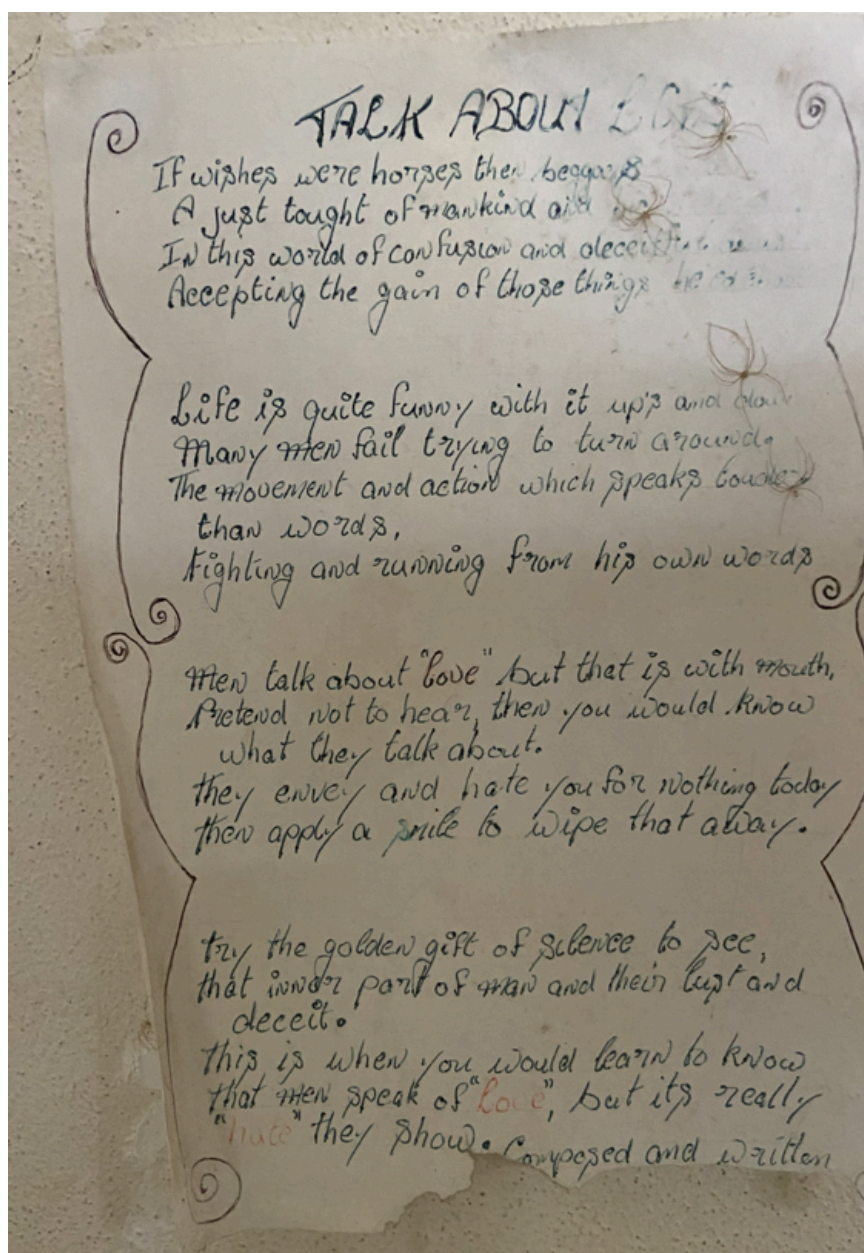 TALK ABOUT
If wishes were horses then beggars
A just tought of mankind and
In this world of confusion and deceit
Accepting the gain of those things he
Life is quite funny with it up's and
Many men fail trying to turn around.
The movement and action which speaks louder
than words,
Fighting and running from his own words
Men talk about "love" but that is with mouth,
Pretend not to hear, then you would know
what they talk about.
they envey and hate you for nothing today
then apply a smile to wipe that away.
try the golden gift of silence to see,
that inner part of man and their lust and
deceit.
this is when you would learn to know
that men speak of "love", but its really
"hate" they show. Composed and written